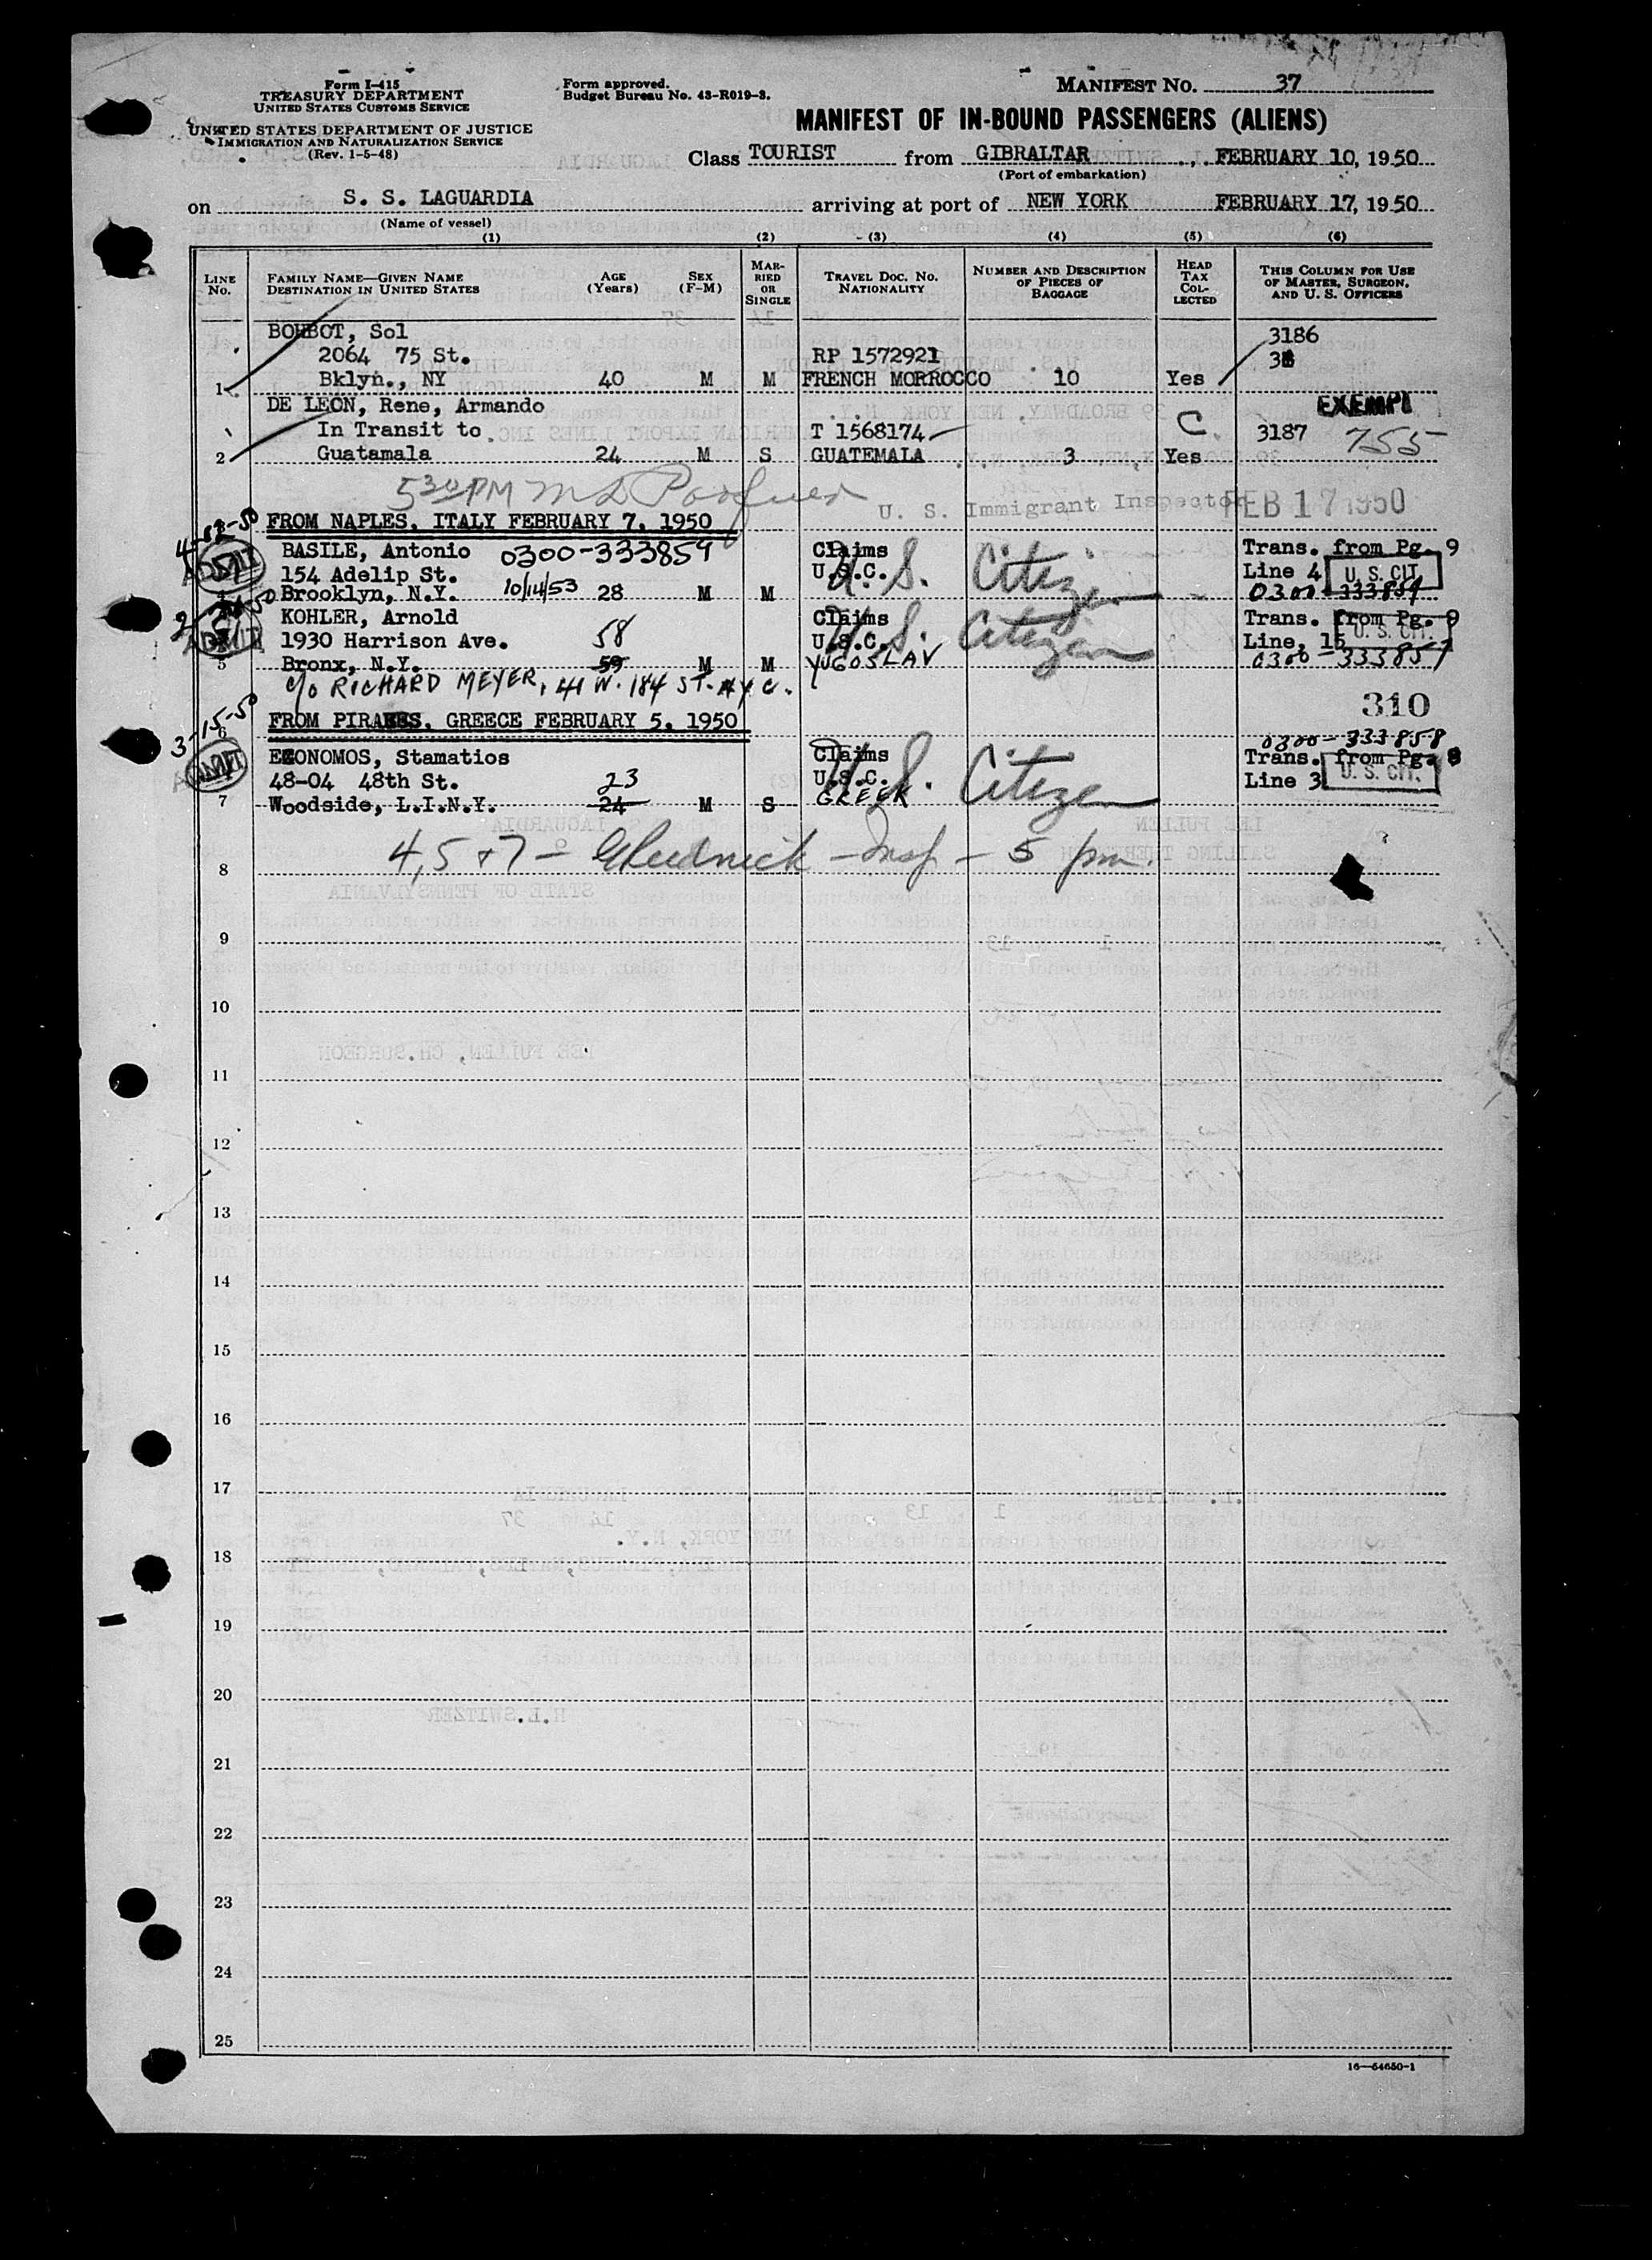 Form I-415
TREASURY DEPARTMENT
UNITED STATES CUSTOMS SERVICE
UNITED STATES DEPARTMENT OF JUSTICE
IMMIGRATION AND NATURALIZATION SERVICE
(Rev. 1-5-48)
Form approved.
Budget Bureau No. 43-R019-3.
MANIFEST NO. 37
MANIFEST OF IN-BOUND PASSENGERS (ALIENS)
Class TOURIST from GIBRALTAR, FEBRUARY 10, 1950
(Port of embarkation)
on S. S. LAGUARDIA arriving at port of NEW YORK FEBRUARY 17, 1950
(Name of vessel)
(1) (2) (3) (4) (5) (6)
LINE NO. FAMILY NAME—GIVEN NAME DESTINATION IN UNITED STATES AGE (Years) SEX (F-M) MARRIED OR SINGLE TRAVEL DOC. NO. NATIONALITY NUMBER AND DESCRIPTION OF PIECES OF BAGGAGE HEAD TAX COLLECTED THIS COLUMN FOR USE OF MASTER, SURGEON, AND U. S. OFFICERS
BOHBOT, Sol 3186
2064 75 St. RP 1572921
1 Bklyn., NY 40 M M FRENCH MORROCCO 10 Yes
DE LEON, Rene, Armando EXEMPT
In Transit to T 1568174 C 3187 755
2 Guatamala 24 M S GUATEMALA 3 Yes
5 30 PM
U. S. Immigrant Inspector FEB 17 1950
3 FROM NAPLES, ITALY FEBRUARY 7, 1950
BASILE, Antonio 0300-333859 Claims Trans. from Pg. 9
ADMIT 154 Adelip St. U.S.C. U. S. Citizen Line 4 U. S. CIT.
4 Brooklyn, N.Y. 10/14/53 28 M M 0300-333859
KOHLER, Arnold Claims Trans. from Pg. 9
ADMIT 1930 Harrison Ave. 58 U.S.C. U. S. Citizen Line, 15 U. S. CIT.
5 Bronx, N.Y. 59 M M YUGOSLAV 0300-333857
c/o RICHARD MEYER, 41 W. 184 ST. N.Y.C.
310
6 FROM PIRAEUS, GREECE FEBRUARY 5, 1950
3-15-50 0300-333858
ECONOMOS, Stamatios Claims Trans. from Pg. 8
ADMIT 48-04 48th St. 23 U.S.C. U. S. Citizen Line 3 U. S. CIT.
7 Woodside, L.I.N.Y. 24 M S GREEK
4, 5 + 7 — Insp — 5 pm.
8
9
10
11
12
13
14
15
16
17
18
19
20
21
22
23
24
25
16—54650-1